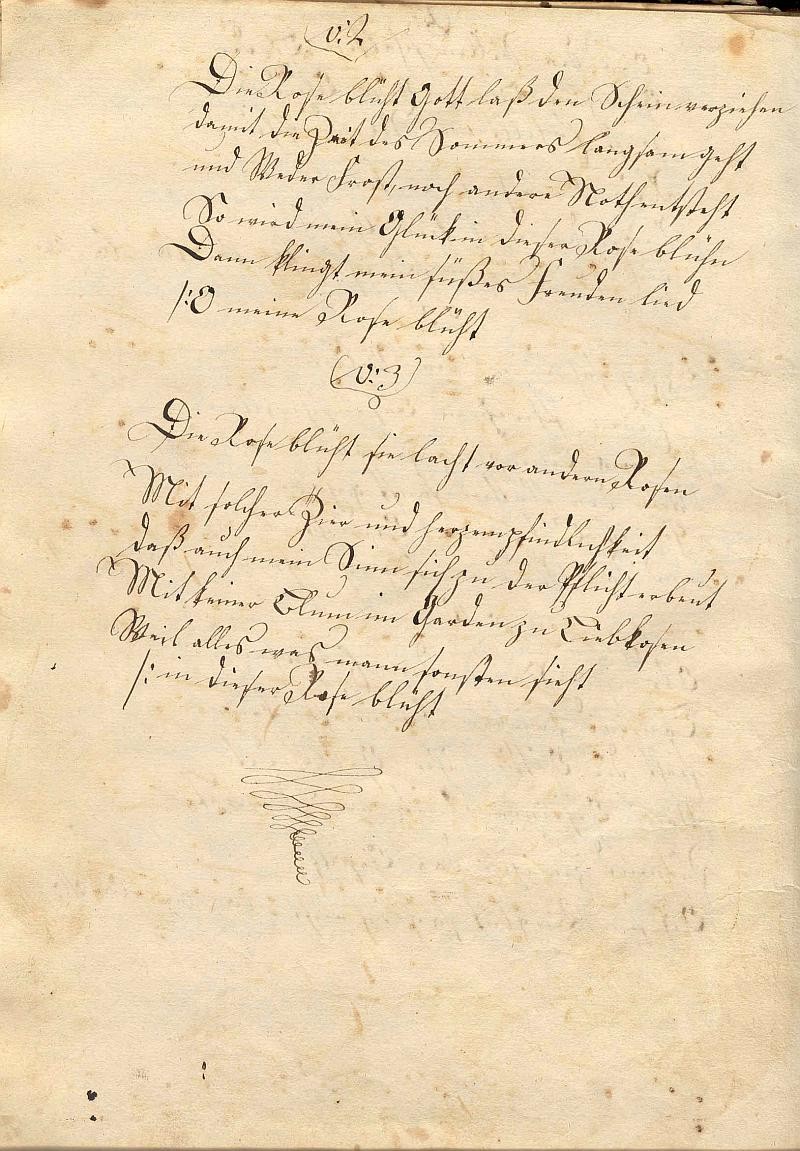 v: 2
Die Rose blüht Gott laß den Schein verziehen
damit die Zeit des Sommers langsam geht
und Weder Frost, noch andere Noth entsteht
So wird mein Glück in dieser Rose blühn
Dann klingt mein süßes Freuden lied
/: O meine Rose blüht
(v: 3)
Die Rose blüht sie lacht vor andern Rosen
Mit solcher Zier und herzempfindlichkeit
daß auch mein Sinn sich zu der Pflicht erbeut
Mit keiner Blum im Garden zu Liebkosen
Weil alles was mann sonsten sieht
/: in dieser Rose blüht